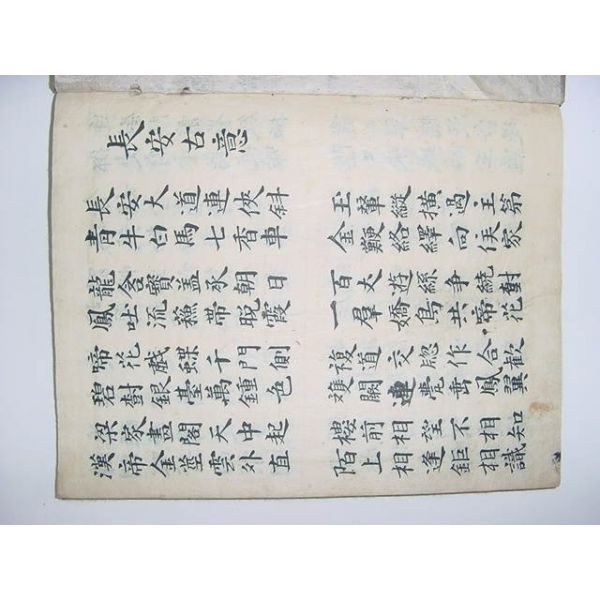 長安古意
長安大道連俠斜
青牛白馬七香車
玉輦縱橫過主第
金鞭絡繹向侯家
龍含寶蓋承朝日
鳳吐流蘓帶晚霞
百丈遊絲爭繞樹
一羣嬌鳥共啼花
啼花戲蝶千門側
碧樹銀臺萬鍾色
複道交窓作合歡
雙闕連甍垂鳳翼
梁家畫閣天中起
漢帝金莖雲外直
樓前相望不相知
陌上相逢鉅相識